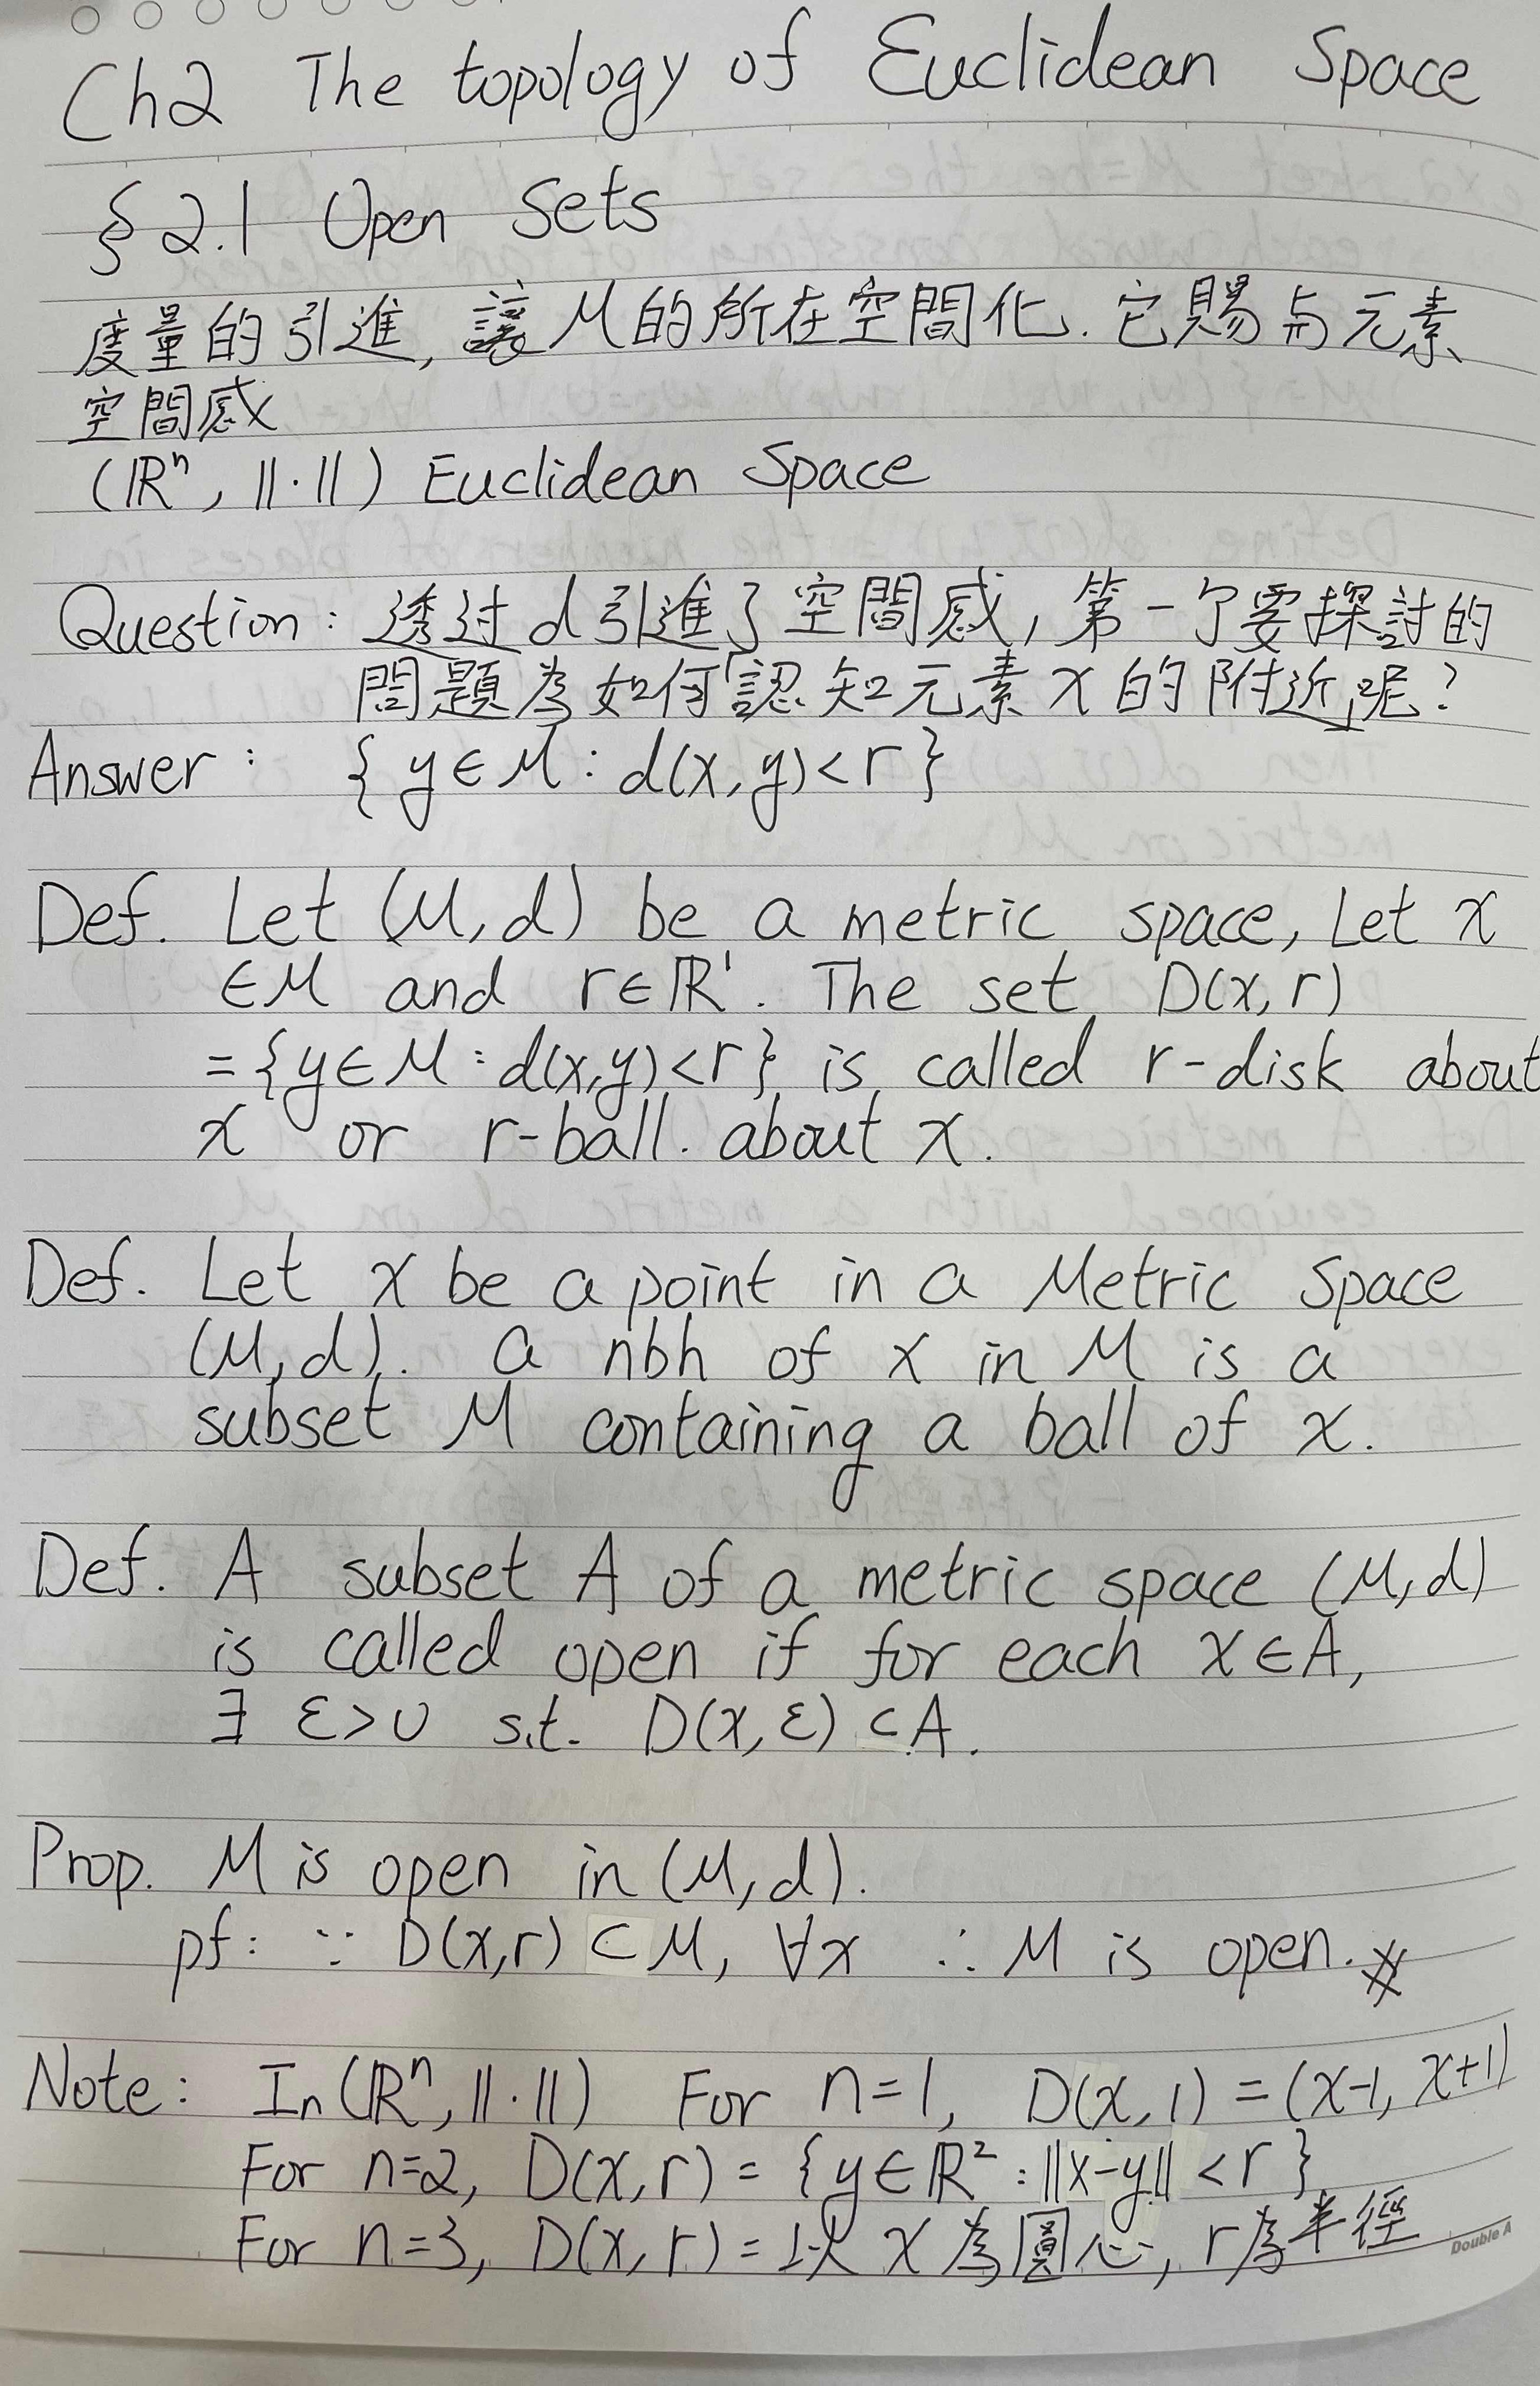 Ch2 The topology of Euclidean Space
§ 2.1 Open Sets
度量的引進, 讓 M 的所在空間化. 它賜与元素
空間感
(ℝⁿ, ||·||) Euclidean Space
Question: 透过 d 引進了空間感, 第一个要探討的
問題為如何「認知元素 x 的附近」呢?
Answer: { y ∈ M : d(x, y) < r }
Def. Let (M, d) be a metric space, Let x
∈ M and r ∈ ℝ¹. The set D(x, r)
= { y ∈ M : d(x, y) < r } is called r-disk about
x or r-ball. about x.
Def. Let x be a point in a Metric Space
(M, d). a nbh of x in M is a
subset M containing a ball of x.
Def. A subset A of a metric space (M, d)
is called open if for each x ∈ A,
∃ ε > 0 s.t. D(x, ε) ⊂ A.
Prop. M is open in (M, d).
pf: ∵ D(x, r) ⊂ M, ∀x ∴ M is open. ※
Note: In (ℝⁿ, ||·||) For n=1, D(x, 1) = (x-1, x+1)
For n=2, D(x, r) = { y ∈ ℝ² : ||x-y|| < r }
For n=3, D(x, r) = 以 x 為圓心, r 為半徑
Double A